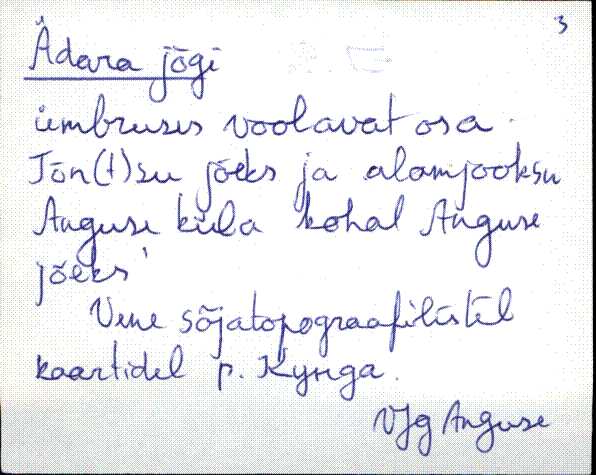 3
Ädara jõgi
ümbruses voolavat osa
Jõn(t)su jõeks ja alamjooksu
Anguse küla kohal Anguse
jõeks'
Vene sõjatopograafilistel
kaartidel р. Кунга.
Anguse